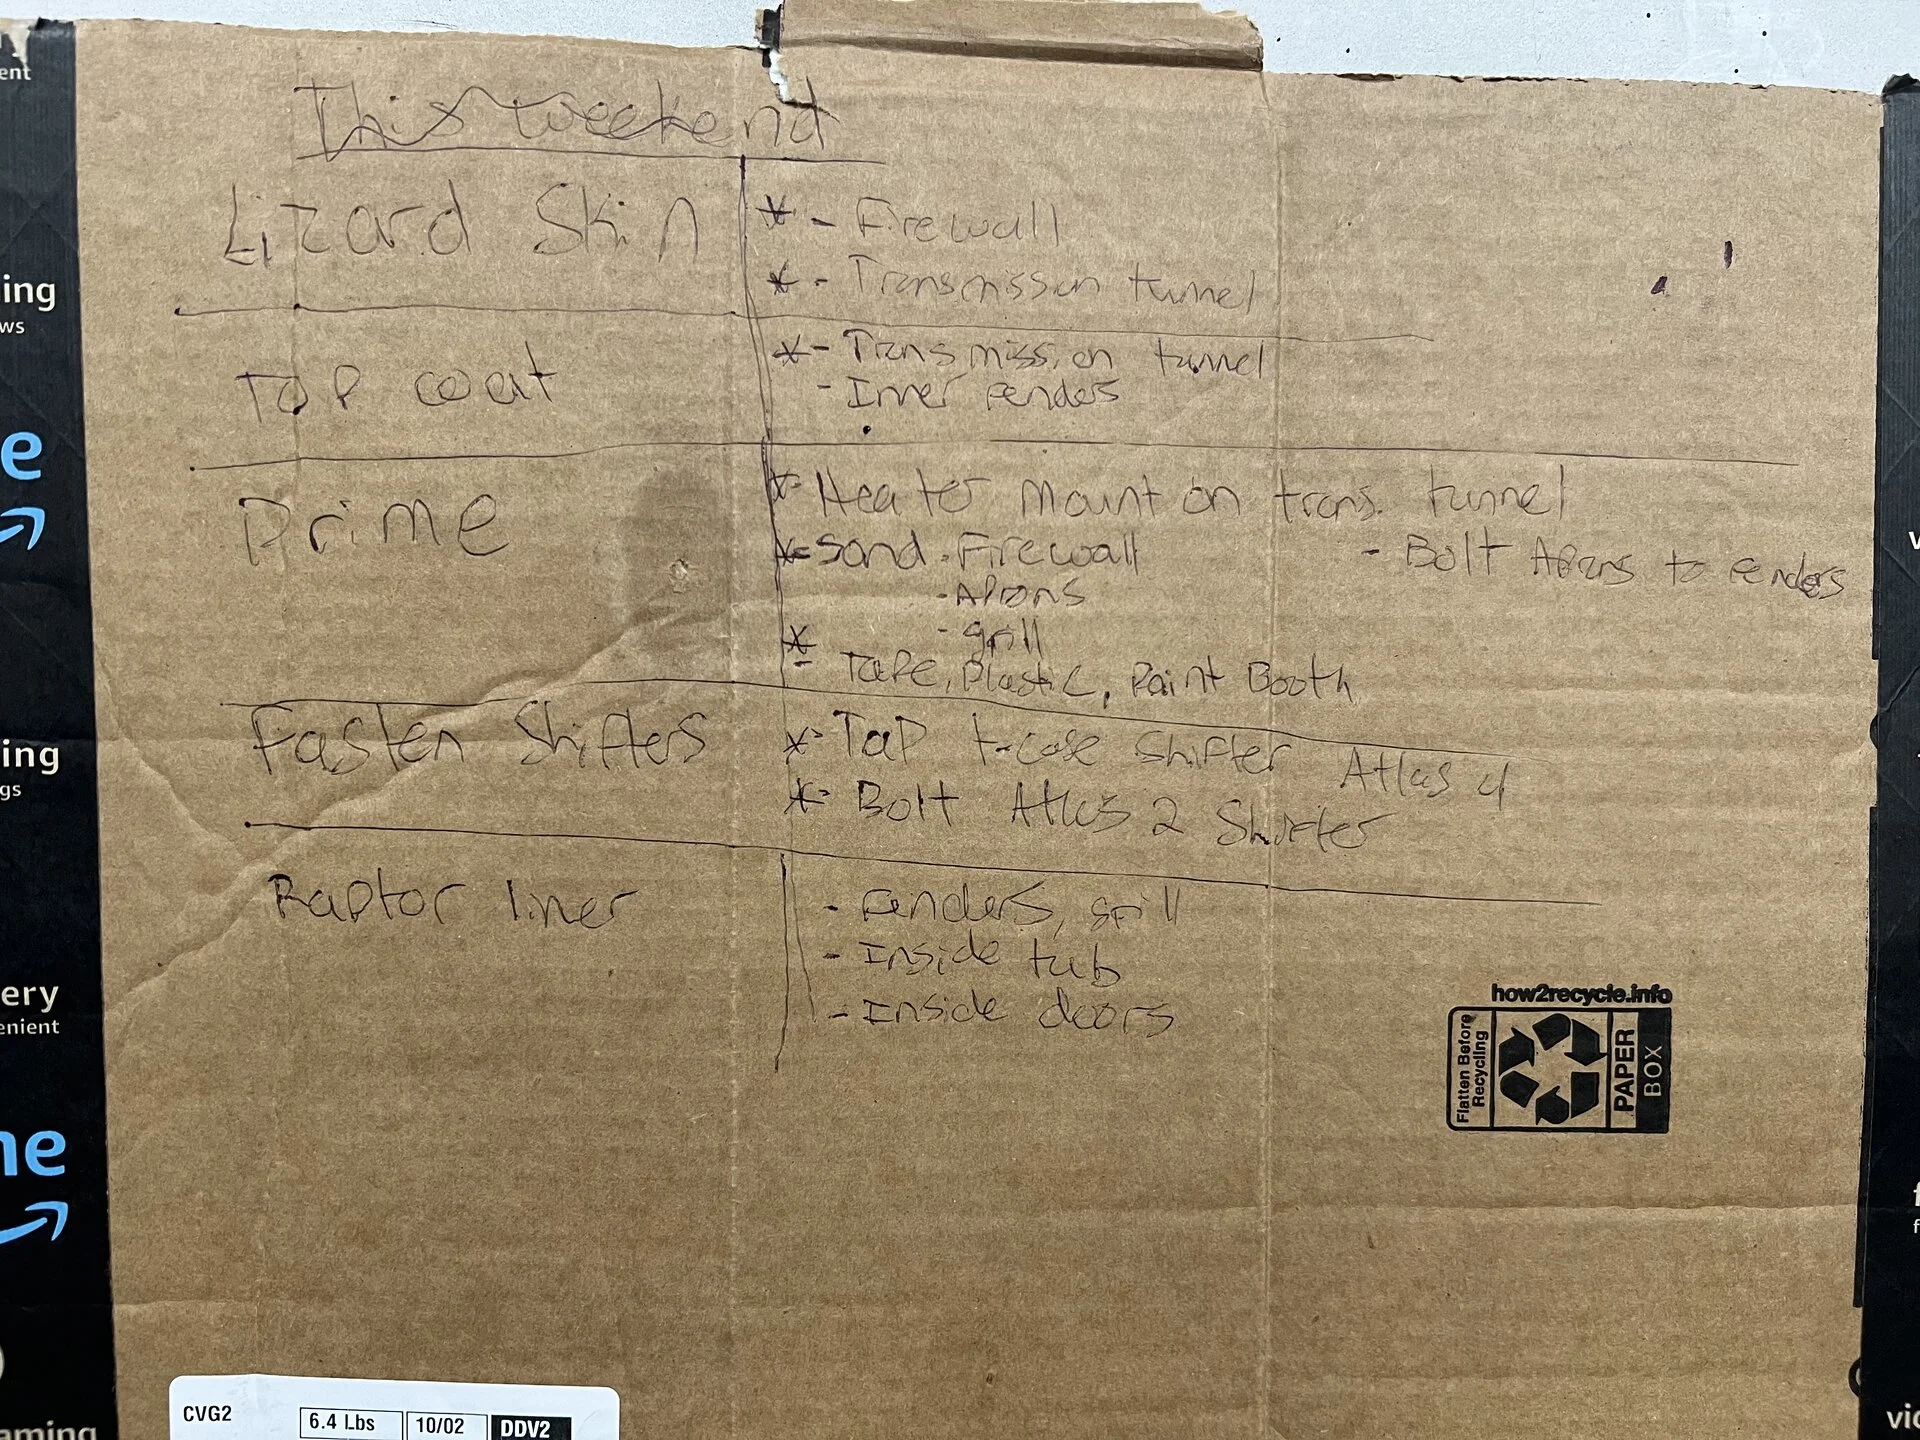 This weekend
Lizard Skin
* - Firewall
* - Transmission tunnel
Top coat
* - Transmission tunnel
- Inner fenders
Prime
* - Heater mount on trans. tunnel
* - Sand - Firewall
- Bolt Aprons to fenders
- Aprons
* - grill
- Tape, Plastic, Paint Booth
Fasten Shifters
* - Tap t-case shifter Atlas 4
* - Bolt Atlas 2 Shifter
Raptor liner
- Fenders, grill
- Inside tub
- Inside doors
how2recycle.info
Flatten Before Recycling
PAPER
BOX
CVG2
6.4 Lbs
10/02
DDV2
ent
ing
ws
e
ing
gs
ery
enient
ne
aming